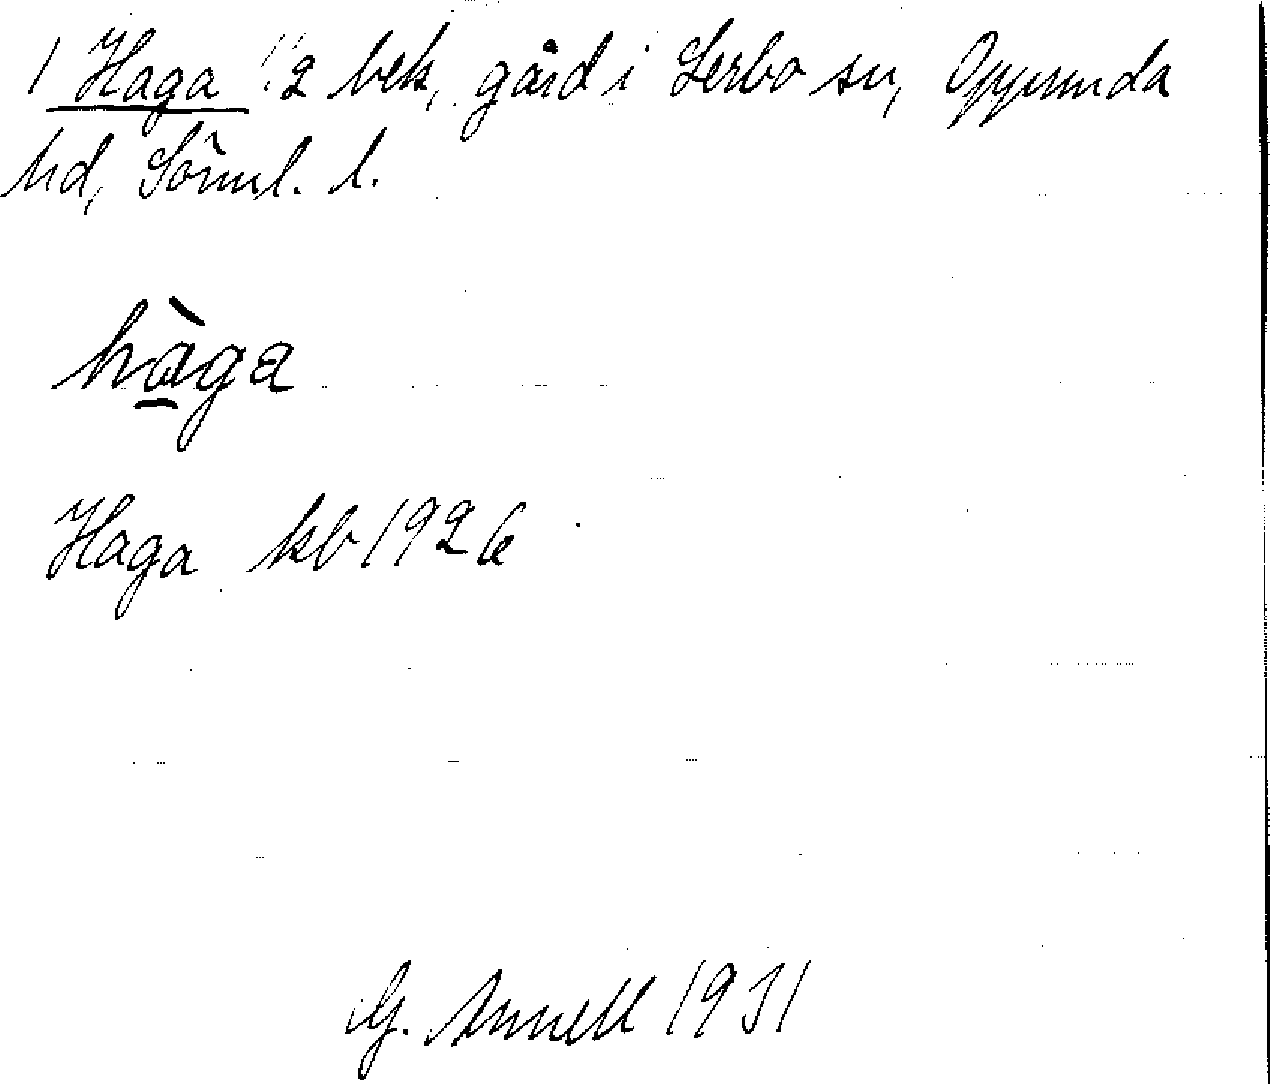 1 Haga 1:2 bek, gård i Lerbo sn, Oppunda
hd, Söml. l.
hàga
Haga kb 1926
G. Annell 1931